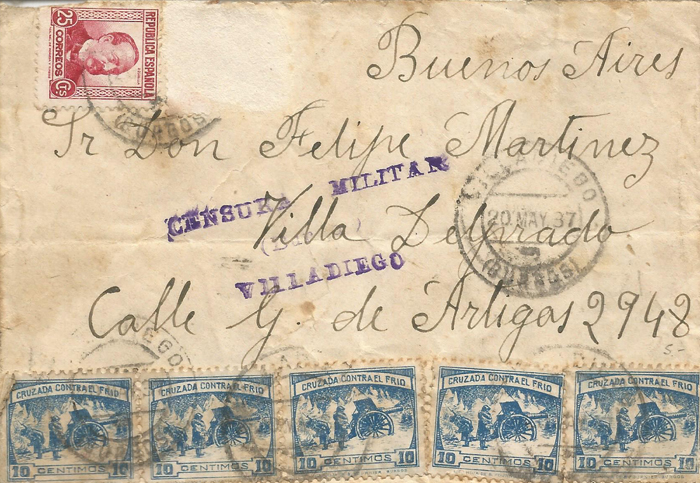 25
CORREOS
REPUBLICA ESPAÑOLA
Cs
(BURGOS)
Buenos Aires
Sr Don Felipe Martinez
CENSURA MILITAR
VILLADIEGO
20 MAY.37
(BURGOS)
Villa Delprado
VILLADIEGO
Calle G. de Artigas 2948
CRUZADA CONTRA EL FRIO
10 CENTIMOS 10
CRUZADA CONTRA EL FRIO
10 CENTIMOS 10
CRUZADA CONTRA EL FRIO
10 CENTIMOS 10
CRUZADA CONTRA EL FRIO
10 CENTIMOS 10
CRUZADA CONTRA EL FRIO
10 CENTIMOS 10